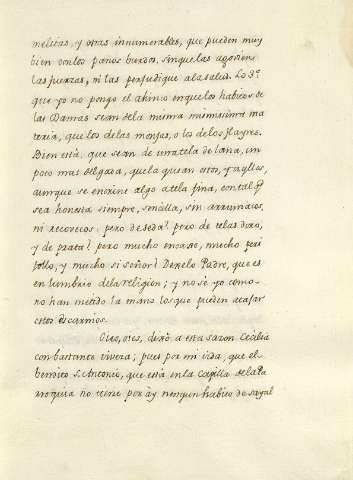 melicas, y otras innumerables, que pueden muy
bien con los panos burdos, sin que las agovien
las fuerzas, ni las perjudique a la salud. Lo 3º
que yo no pongo el ahinco en que los habitos de
las Damas sean de la misma mismissima ma
teria, que los de las monjas, o los de los frayres.
Bien está, que sean de una tela de lana, un
poco mas delgada, que la que usan estos, y aqllos,
aunque se encuine algo a tela fina, con tal q̃
sea honesta siempre, sencilla, sin arrumacos,
ni recovecos: pero de seda? pero de telas de oro,
y de plata? pero mucho encaxe, mucho peri
follo, y mucho si señor? Dexelo Padre, que es
en ludibrio de la religion; y no sé yo como
no han metido la mano los que pueden atajar
estos escarnios.
Oies, oies, dixo a esta sazon Cecilia
con bastante viveza; pues por mi vida, que el
bendito S. Antonio, que está en la Capilla de la Pa
rroquia no tiene por ay ningun habito de sayal